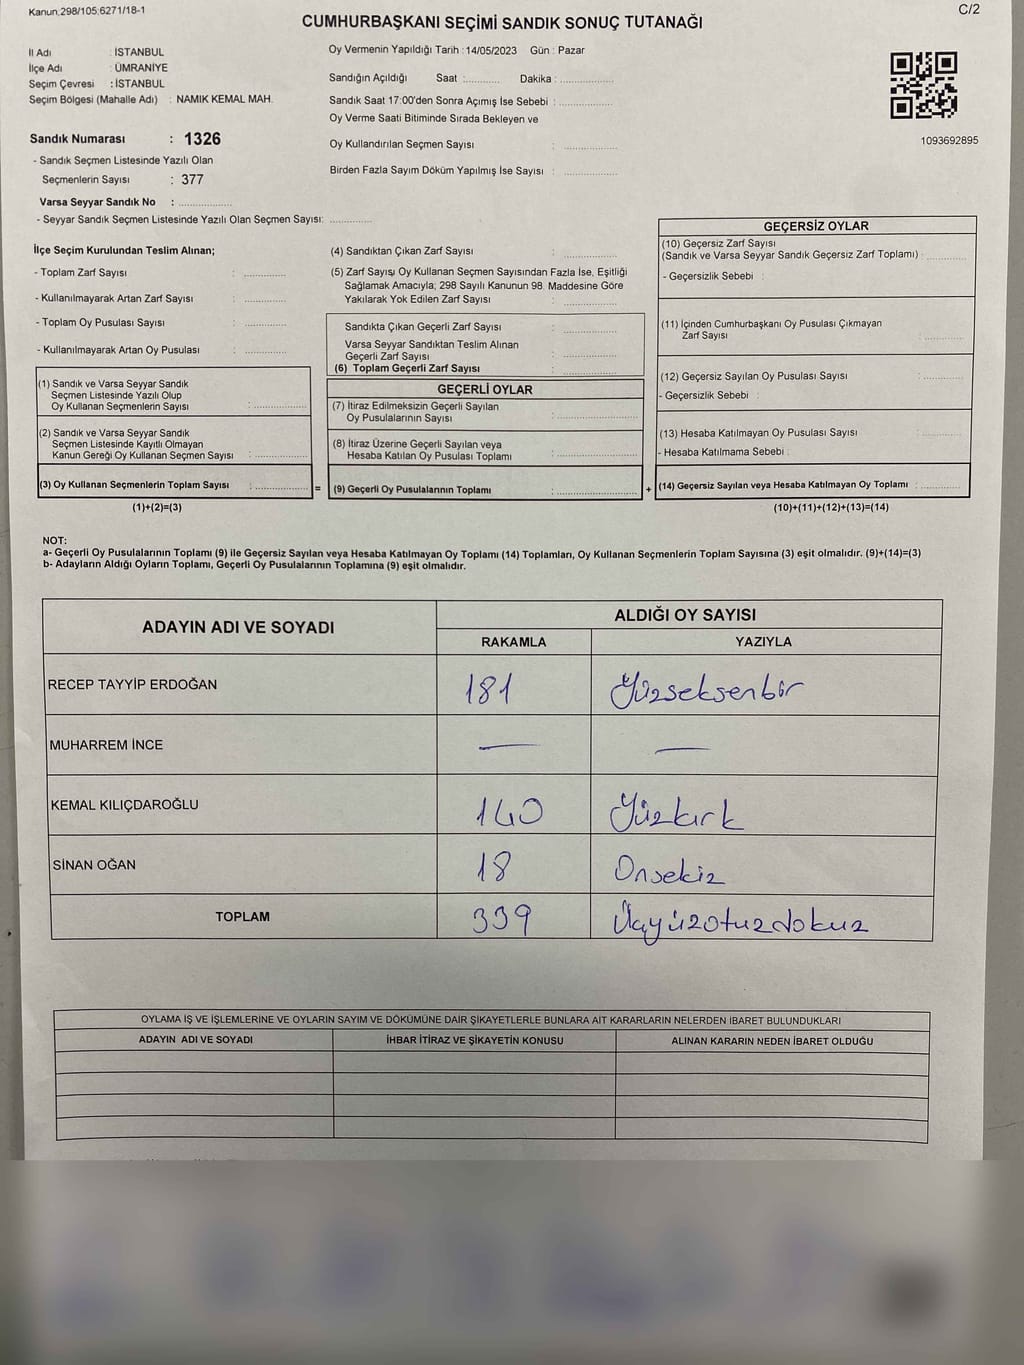 Kanun,298/105;6271/18-1
C/2
CUMHURBAŞKANI SEÇİMİ SANDIK SONUÇ TUTANAĞI
İl Adı : İSTANBUL
İlçe Adı : ÜMRANİYE
Seçim Çevresi : İSTANBUL
Seçim Bölgesi (Mahalle Adı) : NAMIK KEMAL MAH.
Sandık Numarası : 1326
- Sandık Seçmen Listesinde Yazılı Olan
Seçmenlerin Sayısı : 377
Varsa Seyyar Sandık No : ..................
- Seyyar Sandık Seçmen Listesinde Yazılı Olan Seçmen Sayısı: ..............
Oy Vermenin Yapıldığı Tarih : 14/05/2023 Gün : Pazar
Sandığın Açıldığı Saat :............ Dakika : ..................
Sandık Saat 17:00'den Sonra Açımış İse Sebebi : ..................
Oy Verme Saati Bitiminde Sırada Bekleyen ve
Oy Kullandırılan Seçmen Sayısı : ..................
Birden Fazla Sayım Döküm Yapılmış İse Sayısı : ..................
1093692895
İlçe Seçim Kurulundan Teslim Alınan;
- Toplam Zarf Sayısı : ..............
- Kullanılmayarak Artan Zarf Sayısı : ..............
- Toplam Oy Pusulası Sayısı : ..............
- Kullanılmayarak Artan Oy Pusulası : ..............
(1) Sandık ve Varsa Seyyar Sandık
Seçmen Listesinde Yazılı Olup
Oy Kullanan Seçmenlerin Sayısı : ..................
(2) Sandık ve Varsa Seyyar Sandık
Seçmen Listesinde Kayıtlı Olmayan
Kanun Gereği Oy Kullanan Seçmen Sayısı : ..................
(3) Oy Kullanan Seçmenlerin Toplam Sayısı : ..................
(1)+(2)=(3)
(4) Sandıktan Çıkan Zarf Sayısı : ..................
(5) Zarf Sayısı Oy Kullanan Seçmen Sayısından Fazla İse, Eşitliği
Sağlamak Amacıyla; 298 Sayılı Kanunun 98. Maddesine Göre
Yakılarak Yok Edilen Zarf Sayısı : ..................
Sandıkta Çıkan Geçerli Zarf Sayısı : ..................
Varsa Seyyar Sandıktan Teslim Alınan
Geçerli Zarf Sayısı : ..................
(6) Toplam Geçerli Zarf Sayısı : ..................
GEÇERLİ OYLAR
(7) İtiraz Edilmeksizin Geçerli Sayılan
Oy Pusulalarının Sayısı : ..................
(8) İtiraz Üzerine Geçerli Sayılan veya
Hesaba Katılan Oy Pusulası Toplamı : ..................
= (9) Geçerli Oy Pusulalarının Toplamı : ..................
GEÇERSİZ OYLAR
(10) Geçersiz Zarf Sayısı
(Sandık ve Varsa Seyyar Sandık Geçersiz Zarf Toplamı) : ..............
- Geçersizlik Sebebi :
(11) İçinden Cumhurbaşkanı Oy Pusulası Çıkmayan
Zarf Sayısı : ..............
(12) Geçersiz Sayılan Oy Pusulası Sayısı : ..............
- Geçersizlik Sebebi :
(13) Hesaba Katılmayan Oy Pusulası Sayısı : ..............
- Hesaba Katılmama Sebebi :
+ (14) Geçersiz Sayılan veya Hesaba Katılmayan Oy Toplamı : ..............
(10)+(11)+(12)+(13)=(14)
NOT:
a- Geçerli Oy Pusulalarının Toplamı (9) ile Geçersiz Sayılan veya Hesaba Katılmayan Oy Toplamı (14) Toplamları, Oy Kullanan Seçmenlerin Toplam Sayısına (3) eşit olmalıdır. (9)+(14)=(3)
b- Adayların Aldığı Oyların Toplamı, Geçerli Oy Pusulalarının Toplamına (9) eşit olmalıdır.
ADAYIN ADI VE SOYADI ALDIĞI OY SAYISI
RAKAMLA YAZIYLA
RECEP TAYYİP ERDOĞAN 181 Yüzseksenbir
MUHARREM İNCE — —
KEMAL KILIÇDAROĞLU 140 Yüzkırk
SİNAN OĞAN 18 Onsekiz
TOPLAM 339 Üçyüzotuzdokuz
OYLAMA İŞ VE İŞLEMLERİNE VE OYLARIN SAYIM VE DÖKÜMÜNE DAİR ŞİKAYETLERLE BUNLARA AİT KARARLARIN NELERDEN İBARET BULUNDUKLARI
ADAYIN ADI VE SOYADI İHBAR İTİRAZ VE ŞİKAYETİN KONUSU ALINAN KARARIN NEDEN İBARET OLDUĞU